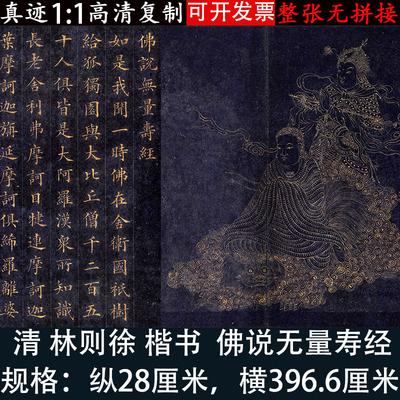 真迹1:1高清复制 可开发票 整张无拼接
佛說無量壽經
如是我聞一時佛在舍衛國祇樹
給孤獨園與大比丘僧千二百五
十人俱皆是大阿羅漢衆所知識
長老舍利弗摩訶目揵連摩訶迦
葉摩訶迦旃延摩訶俱絺羅離婆
清 林则徐 楷书 佛说无量寿经
规格：纵28厘米，横396.6厘米